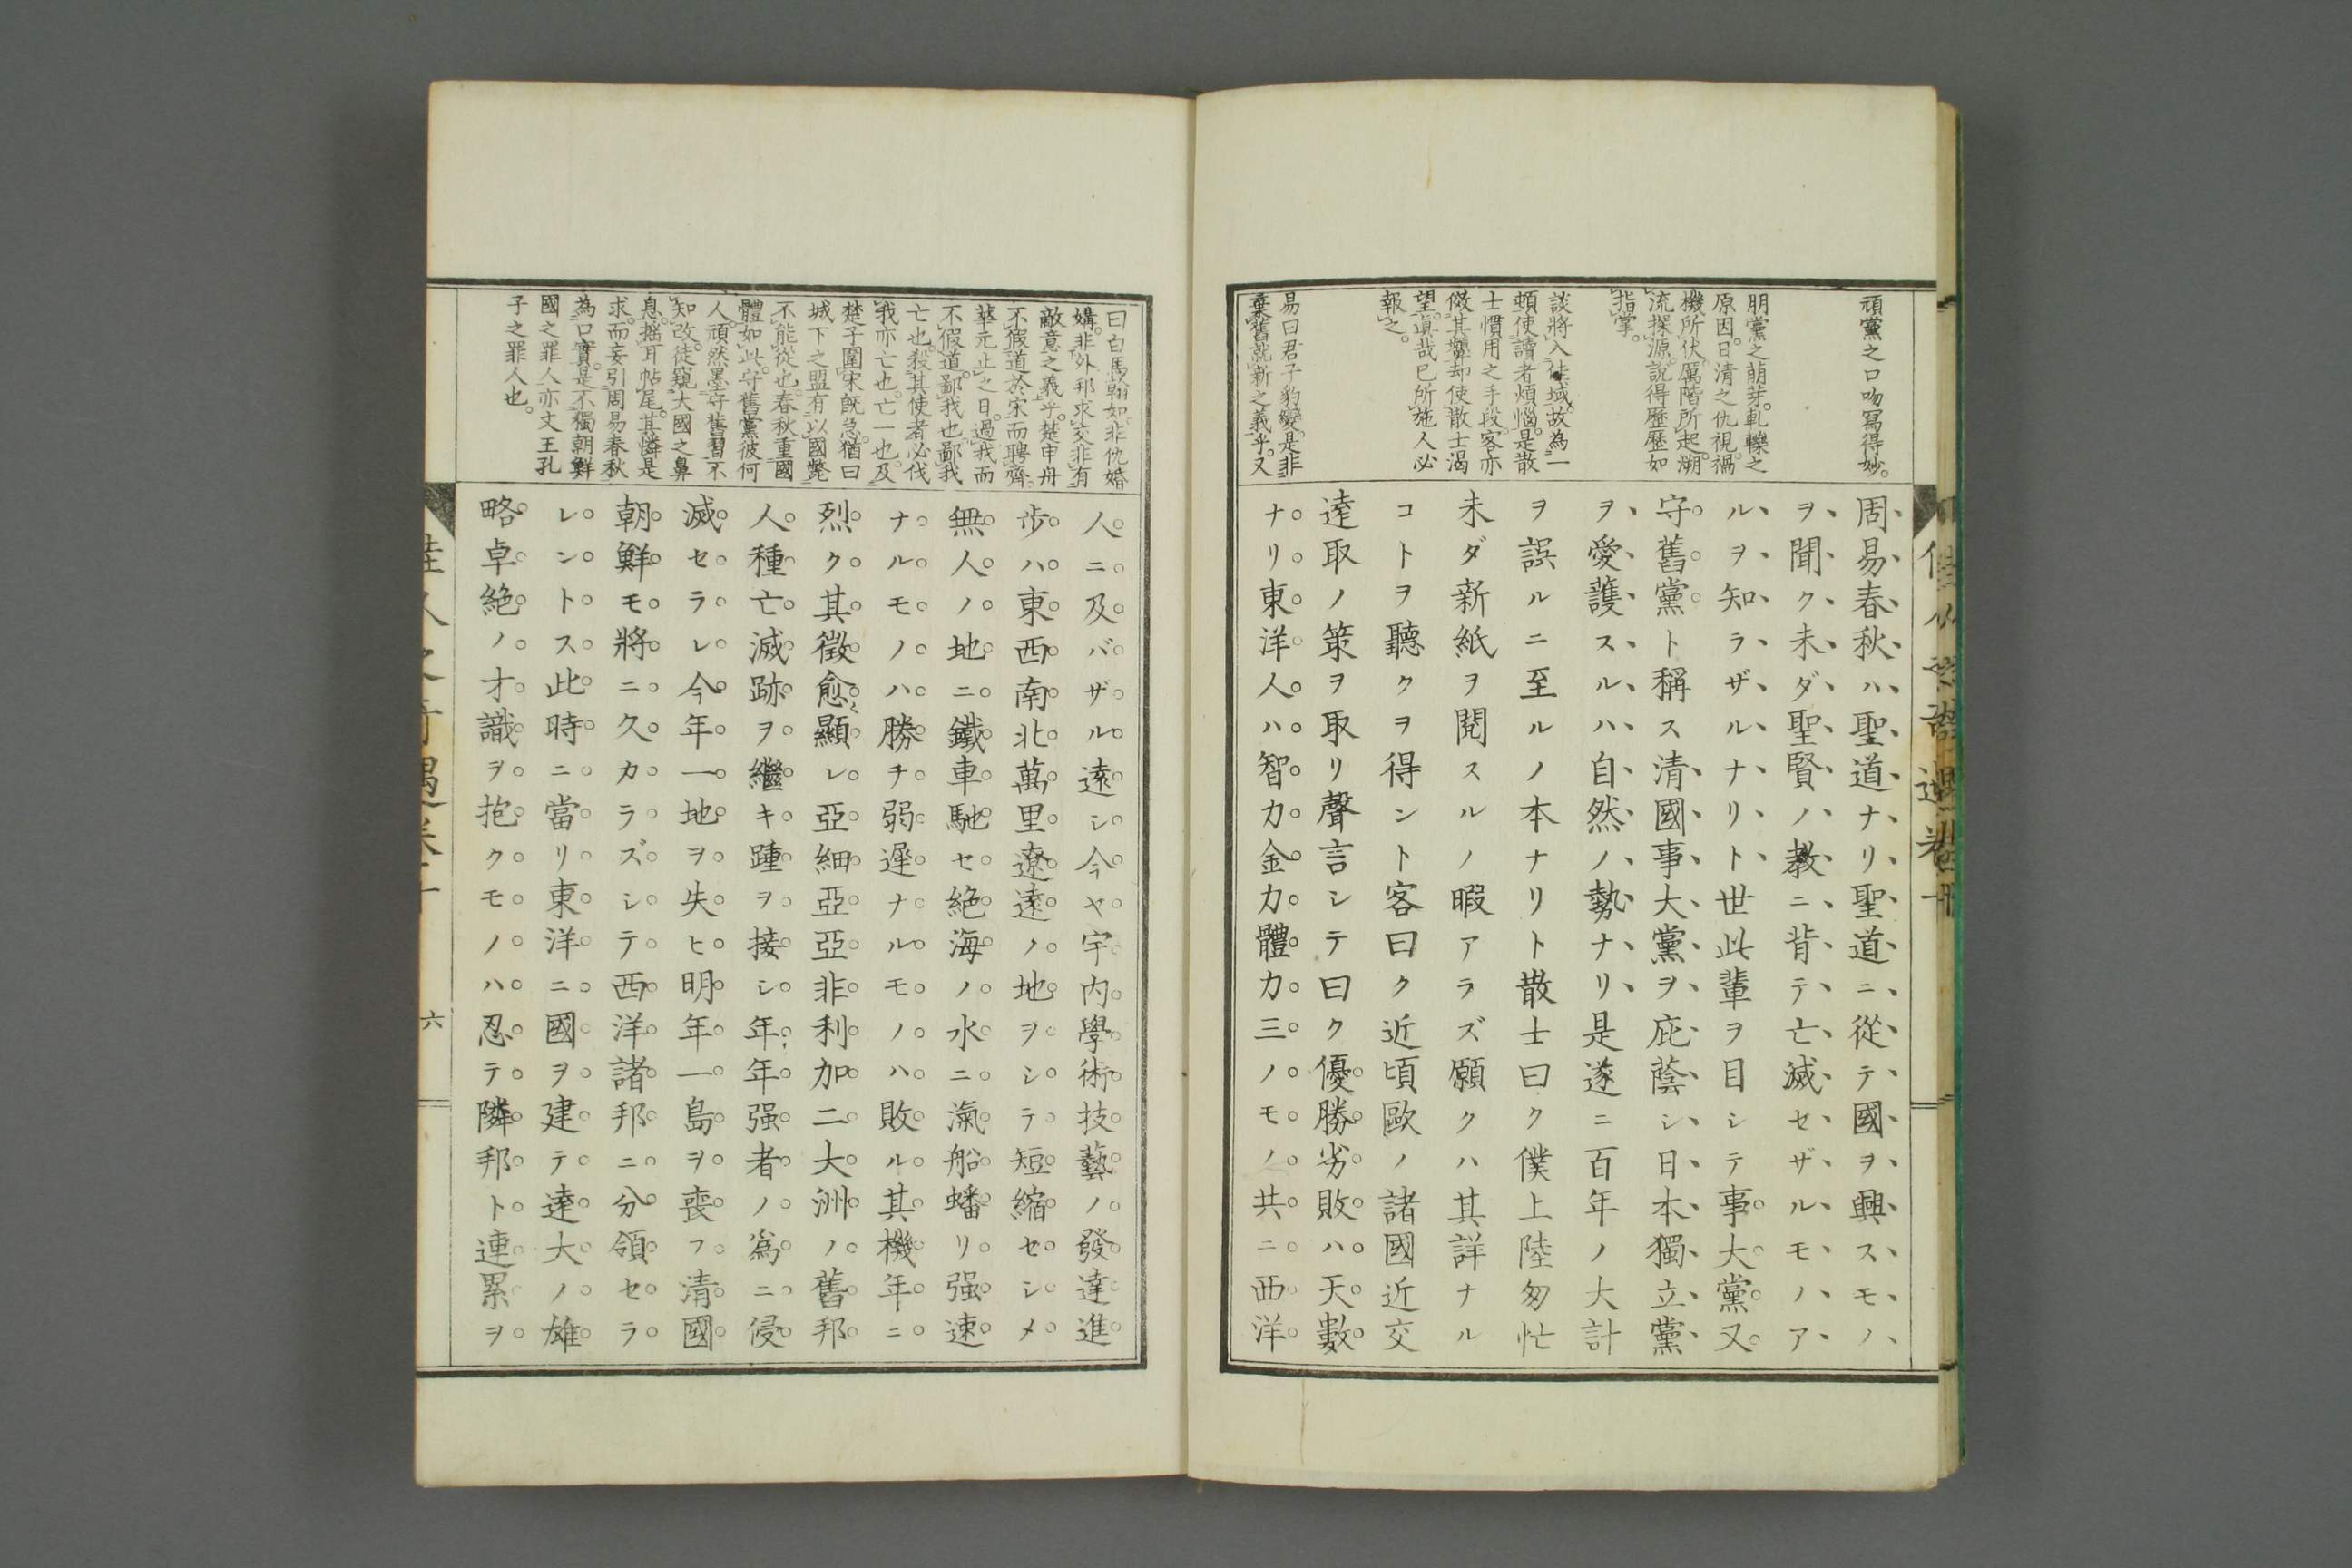 頑黨之口吻寫得妙。
朋黨之萠芽。軋轢之
原因。日清之仇視。禍
機所伏。厲階所起。溯
流探源。說得歷歷如
指掌。
談將入佳域。故為一
頓使讀者煩惱。是散
士慣用之手段。客亦
倣其顰。却使散士渴
望。眞哉已所施人必
報之。
易曰君子豹變。是非
棄舊就新之義乎。又
周易春秋ハ聖道ナリ聖道ニ從テ國ヲ興スモノ
ヲ聞ク未ダ聖賢ノ教ニ背テ亡滅セザルモノア
ルヲ知ラザルナリト世此輩ヲ目シテ事大黨又
守舊黨ト稱ス清國事大黨ヲ庇蔭シ日本獨立黨
ヲ愛護スルハ自然ノ勢ナリ是遂ニ百年ノ大計
ヲ誤ルニ至ルノ本ナリト散士曰ク僕上陸匆忙
未ダ新紙ヲ閱スルノ暇アラズ願クハ其詳ナル
コトヲ聽クヲ得ント客曰ク近頃歐ノ諸國近交
遠取ノ策ヲ取リ聲言シテ曰ク優勝劣敗ハ天數
ナリ東洋人ハ智力金力體力三ノモノ共ニ西洋
曰白馬翰如。非仇婚
媾。非外邦求交非有
敵意之義乎。楚申舟
不假道於宋而聘齊。
華元止之曰。過我而
不假道。鄙我也。鄙我
亡也。殺其使者必伐
我亦亡也。亡一也。及
楚子圍宋既急。猶曰
城下之盟有以國斃
不能從也。春秋重國
體如此。守舊黨彼何
人。頑然墨守舊習不
知改。徒窺大國之鼻
息。搖耳帖尾。其憐是
求。而妄引周易春秋
為口實。是不獨朝鮮
國之罪人亦文王孔
子之罪人也。
人ニ及バザル遠シ今ヤ宇内學術技藝ノ發達進
步ハ東西南北萬里遼遠ノ地ヲシテ短縮セシメ
無人ノ地ニ鐵車馳セ絕海ノ水ニ滊船蟠リ强速
ナルモノハ勝チ弱遲ナルモノハ敗ル其機年ニ
烈ク其徵愈顯レ亞細亞亞非利加二大洲ノ舊邦
人種亡滅跡ヲ繼キ踵ヲ接シ年年强者ノ爲ニ侵
滅セラレ今年一地ヲ失ヒ明年一島ヲ喪フ清國
朝鮮モ將ニ久カラズシテ西洋諸邦ニ分領セラ
レントス此時ニ當リ東洋ニ國ヲ建テ達大ノ雄
略卓絕ノ才識ヲ抱クモノハ忍テ隣邦ト連累ヲ
佳人之奇遇卷十
六